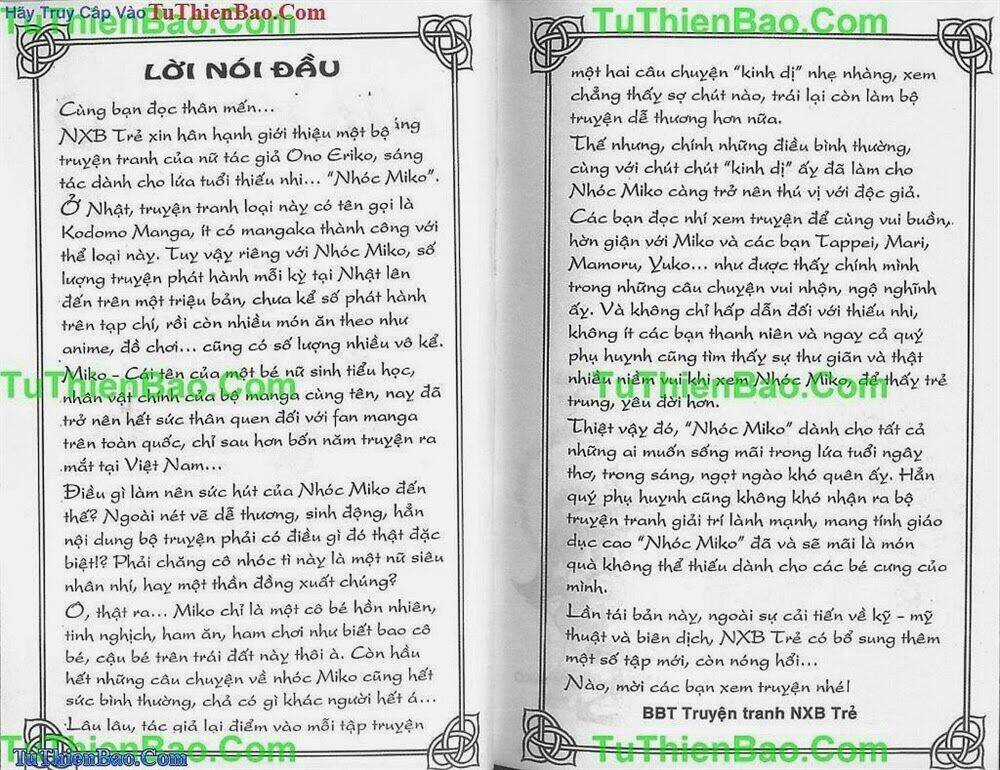 Hãy Truy Cập Vào TuThienBao.Com
TuThienBao.Com
TuThienBao.Com
LỜI NÓI ĐẦU
Cùng bạn đọc thân mến...
NXB Trẻ xin hân hạnh giới thiệu một bộ
truyện tranh của nữ tác giả Ono Eriko, sáng
tác dành cho lứa tuổi thiếu nhi... “Nhóc Miko”.
Ở Nhật, truyện tranh loại này có tên gọi là
Kodomo Manga, ít có mangaka thành công với
thể loại này. Tuy vậy riêng với Nhóc Miko, số
lượng truyện phát hành mỗi kỳ tại Nhật lên
đến trên một triệu bản, chưa kể số phát hành
trên tạp chí, rồi còn nhiều món ăn theo như
anime, đồ chơi... cũng có số lượng nhiều vô kể.
Miko - Cái tên của một bé nữ sinh tiểu học,
nhân vật chính của bộ manga cùng tên, nay đã
trở nên hết sức thân quen đối với fan manga
trên toàn quốc, chỉ sau hơn bốn năm truyện ra
mắt tại Việt Nam...
Điều gì làm nên sức hút của Nhóc Miko đến
thế? Ngoài nét vẽ dễ thương, sinh động, hẳn
nội dung bộ truyện phải có điều gì đó thật đặc
biệt!? Phải chăng cô nhóc tì này là một nữ siêu
nhân nhí, hay một thần đồng xuất chúng?
Ồ, thật ra... Miko chỉ là một cô bé hồn nhiên,
tinh nghịch, ham ăn, ham chơi như biết bao cô
bé, cậu bé trên trái đất này thôi à. Còn hầu
hết những câu chuyện về nhóc Miko cũng hết
sức bình thường, chả có gì khác người hết á...
Lâu lâu, tác giả lại điểm vào mỗi tập truyện
một hai câu chuyện “kinh dị” nhẹ nhàng, xem
chẳng thấy sợ chút nào, trái lại còn làm bộ
truyện dễ thương hơn nữa.
Thế nhưng, chính những điều bình thường,
cùng với chút chút “kinh dị” ấy đã làm cho
Nhóc Miko càng trở nên thú vị với độc giả.
Các bạn đọc nhí xem truyện để cùng vui buồn,
hờn giận với Miko và các bạn Tappei, Mari,
Mamoru, Yuko... như được thấy chính mình
trong những câu chuyện vui nhộn, ngộ nghĩnh
ấy. Và không chỉ hấp dẫn đối với thiếu nhi,
không ít các bạn thanh niên và ngay cả quý
phụ huynh cũng tìm thấy sự thư giãn và thật
nhiều niềm vui khi xem Nhóc Miko, để thấy trẻ
trung, yêu đời hơn.
Thiệt vậy đó, “Nhóc Miko” dành cho tất cả
những ai muốn sống mãi trong lứa tuổi ngây
thơ, trong sáng, ngọt ngào khó quên ấy. Hẳn
quý phụ huynh cũng không khó nhận ra bộ
truyện tranh giải trí lành mạnh, mang tính giáo
dục cao “Nhóc Miko” đã và sẽ mãi là món
quà không thể thiếu dành cho các bé cưng của
mình.
Lần tái bản này, ngoài sự cải tiến về kỹ - mỹ
thuật và biên dịch, NXB Trẻ có bổ sung thêm
một số tập mới, còn nóng hổi...
Nào, mời các bạn xem truyện nhé!
BBT Truyện tranh NXB Trẻ
TuThienBao.Com
TuThienBao.Com
TuThienBao.Com
TuThienBao.Com
TuThienBao.Com